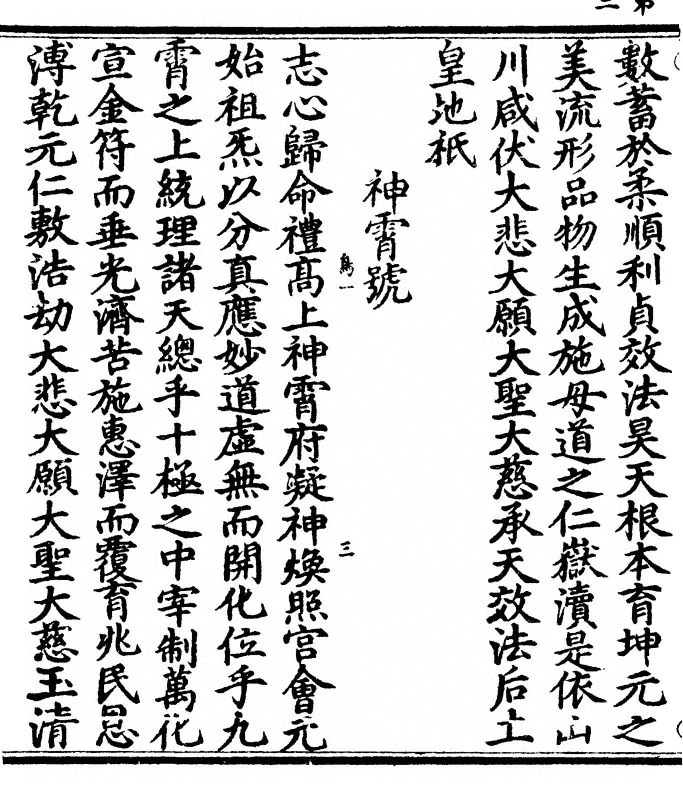 數蓄於柔順利貞效法昊天根本育坤元之
美流形品物生成施母道之仁嶽瀆是依山
川咸伏大悲大願大聖大慈承天效法后土
皇地祇
神霄號
志心歸命禮高上神霄府凝神煥照宮會元
始祖炁以分真應妙道虛無而開化位乎九
霄之上統理諸天總乎十極之中宰制萬化
宣金符而垂光濟苦施惠澤而覆育兆民恩
溥乾元仁敷浩劫大悲大願大聖大慈玉清